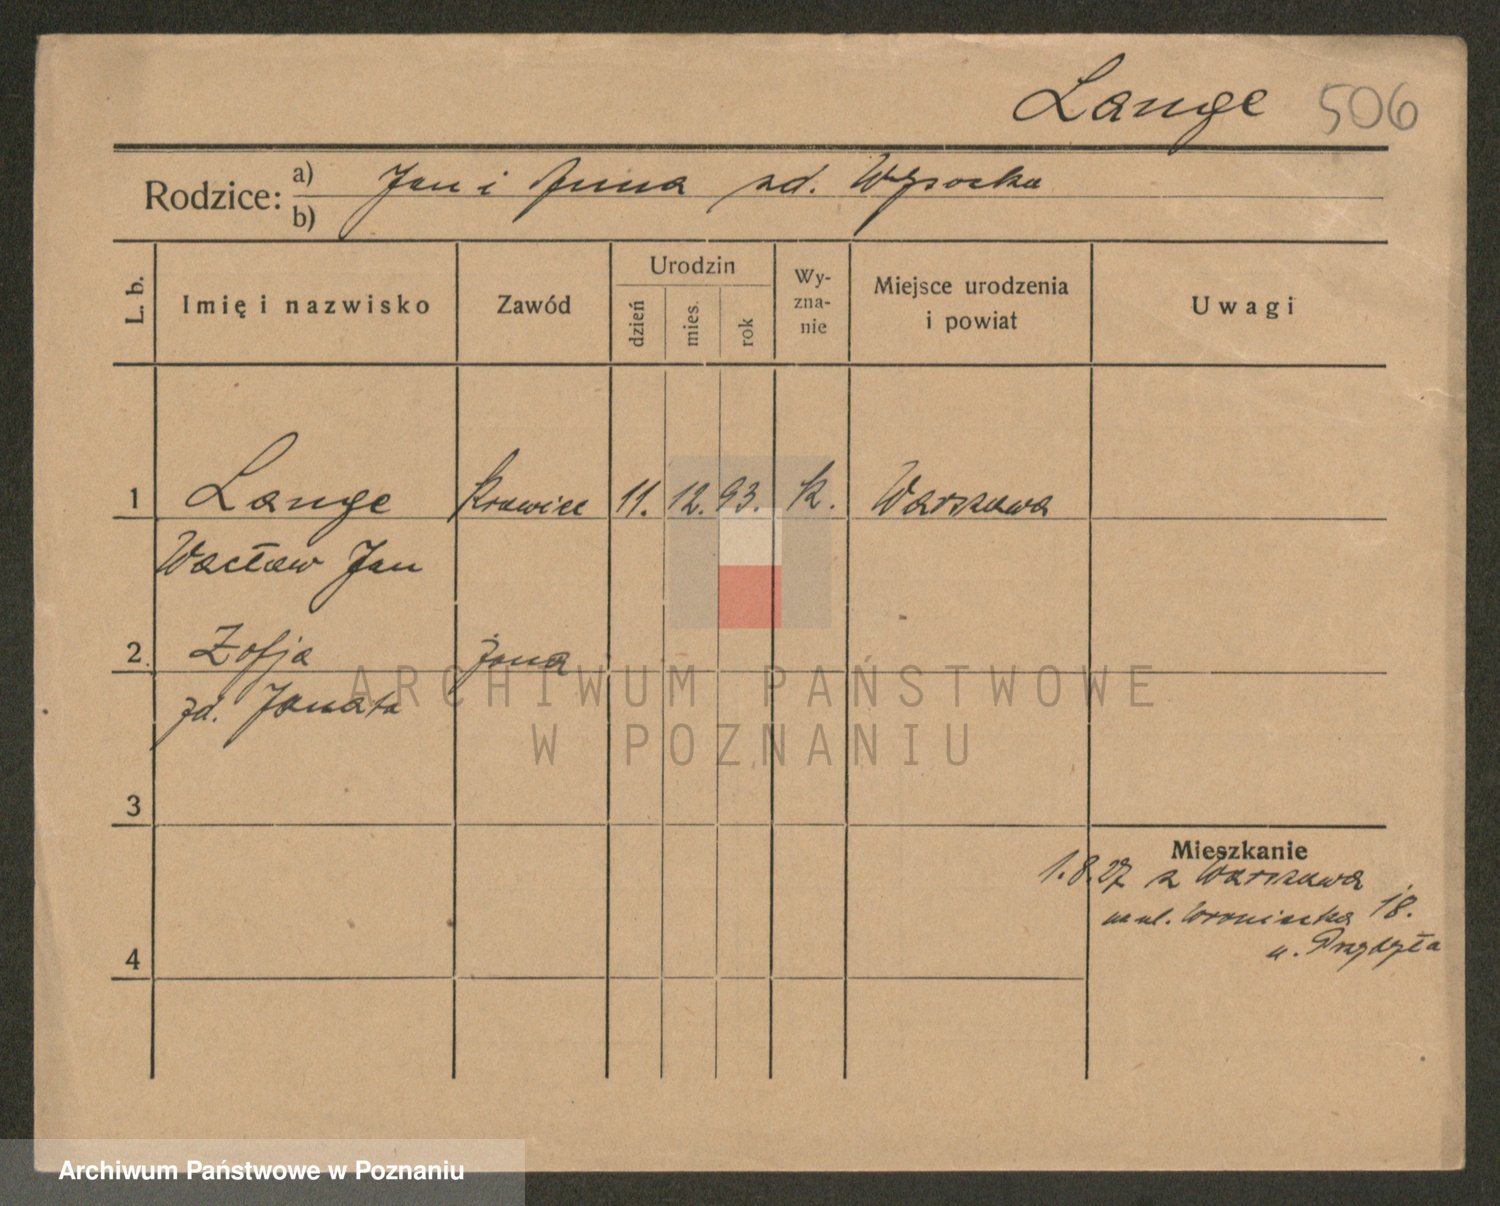 Lange 506
Rodzice: a) Jan i Anna zd. Wysocka
b)
L. b.
Imię i nazwisko
Zawód
Urodzin
dzień
mies.
rok
Wy-
zna-
nie
Miejsce urodzenia
i powiat
Uwagi
1 Lange Krawiec 11. 12. 93. k. Warszawa
Wacław Jan
2 Zofja żona
zd. Janata
3
4
Mieszkanie
1.8.27 z Warszawa
na ul. Wroniecka 18.
u. Przybyła
ARCHIWUM PAŃSTWOWE
W POZNANIU
Archiwum Państwowe w Poznaniu